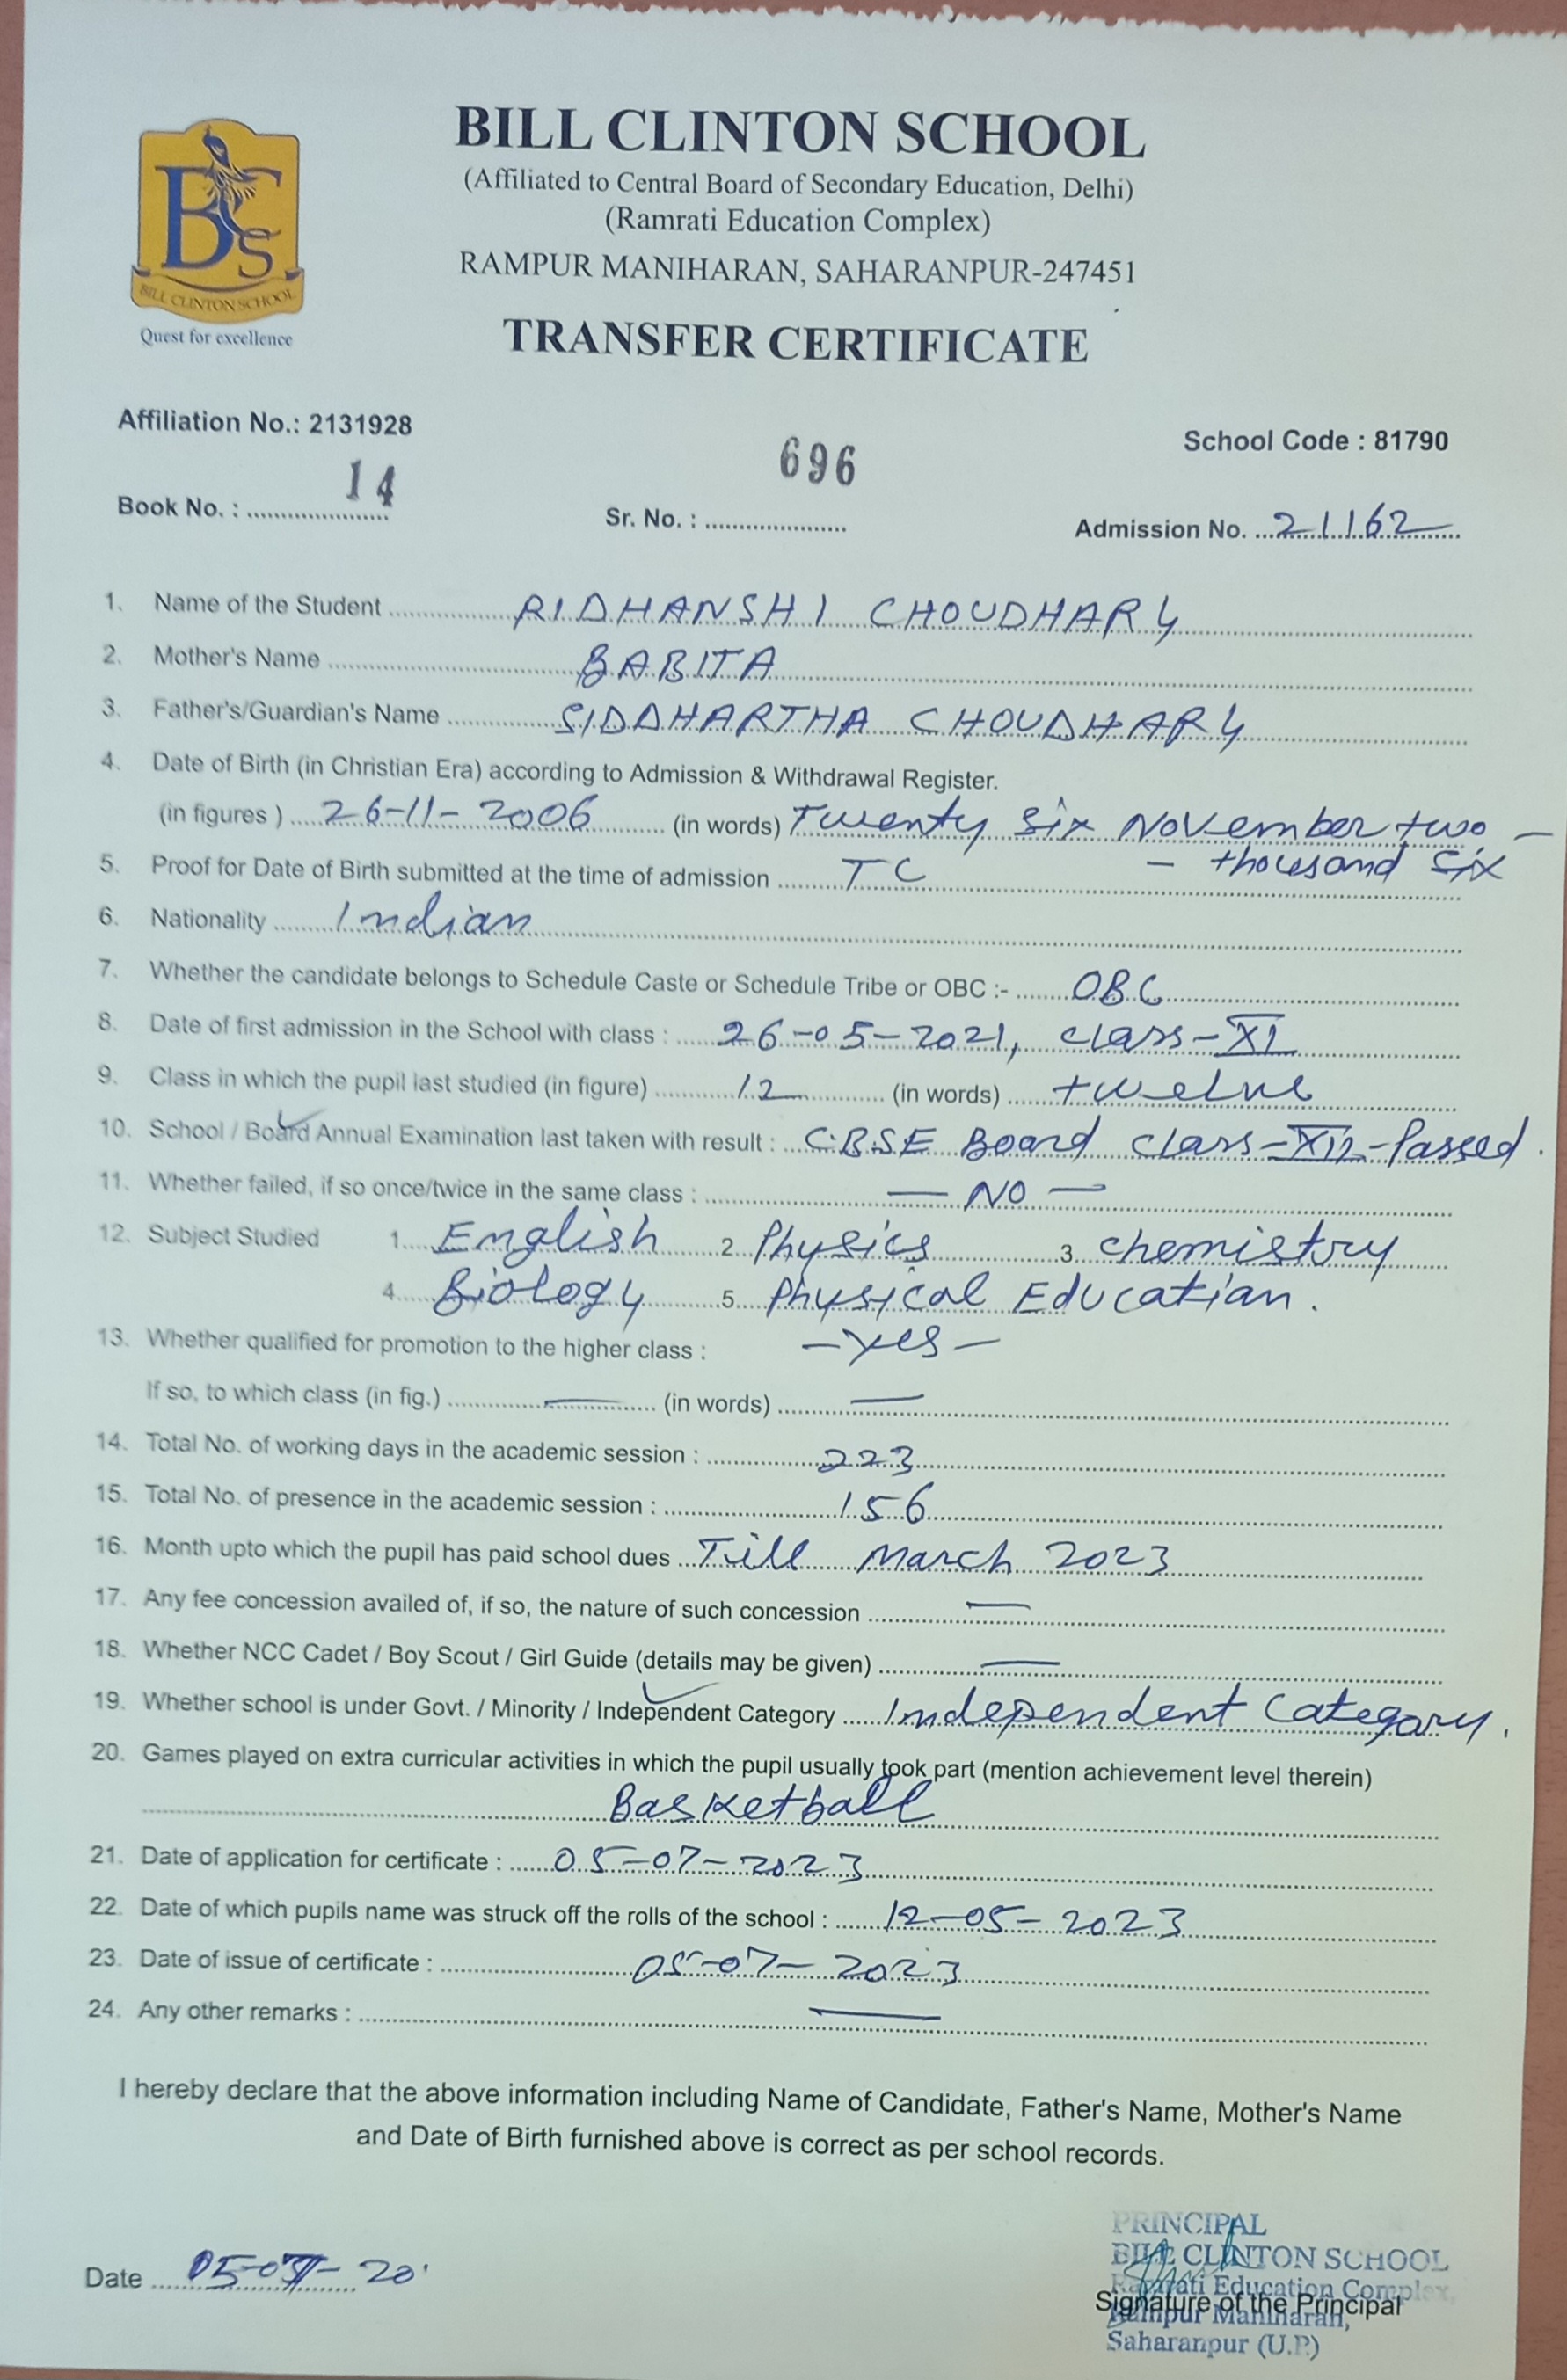 BILL CLINTON SCHOOL
(Affiliated to Central Board of Secondary Education, Delhi)
(Ramrati Education Complex)
RAMPUR MANIHARAN, SAHARANPUR-247451
BCS
BILL CLINTON SCHOOL
Quest for excellence
TRANSFER CERTIFICATE
Affiliation No.: 2131928
School Code : 81790
Book No. : 14 Sr. No. : 696 Admission No. 21162
1. Name of the Student RIDHANSHI CHOUDHARY
2. Mother's Name BABITA
3. Father's/Guardian's Name SIDDHARTHA CHOUDHARY
4. Date of Birth (in Christian Era) according to Admission & Withdrawal Register.
(in figures ) 26-11-2006 (in words) Twenty six November two -
- thousand six
5. Proof for Date of Birth submitted at the time of admission TC
6. Nationality Indian
7. Whether the candidate belongs to Schedule Caste or Schedule Tribe or OBC :- OBC
8. Date of first admission in the School with class : 26-05-2021, class-XI
9. Class in which the pupil last studied (in figure) 12 (in words) twelve
10. School / Board Annual Examination last taken with result : C.B.S.E Board class-XII-Passed.
11. Whether failed, if so once/twice in the same class : — NO —
12. Subject Studied 1. English 2. Physics 3. chemistry
4. Biology 5. Physical Education.
13. Whether qualified for promotion to the higher class : -yes-
If so, to which class (in fig.) — (in words) —
14. Total No. of working days in the academic session : 223
15. Total No. of presence in the academic session : 156
16. Month upto which the pupil has paid school dues Till March 2023
17. Any fee concession availed of, if so, the nature of such concession —
18. Whether NCC Cadet / Boy Scout / Girl Guide (details may be given) —
19. Whether school is under Govt. / Minority / Independent Category Independent Category.
20. Games played on extra curricular activities in which the pupil usually took part (mention achievement level therein)
Basketball
21. Date of application for certificate : 05-07-2023
22. Date of which pupils name was struck off the rolls of the school : 12-05-2023
23. Date of issue of certificate : 05-07-2023
24. Any other remarks : —
I hereby declare that the above information including Name of Candidate, Father's Name, Mother's Name
and Date of Birth furnished above is correct as per school records.
PRINCIPAL
BILL CLINTON SCHOOL
Ramrati Education Complex,
Date 05-07-20
Signature of the Principal
Rampur Maniharan,
Saharanpur (U.P.)